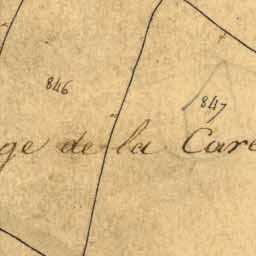 846
847
ge de la Care